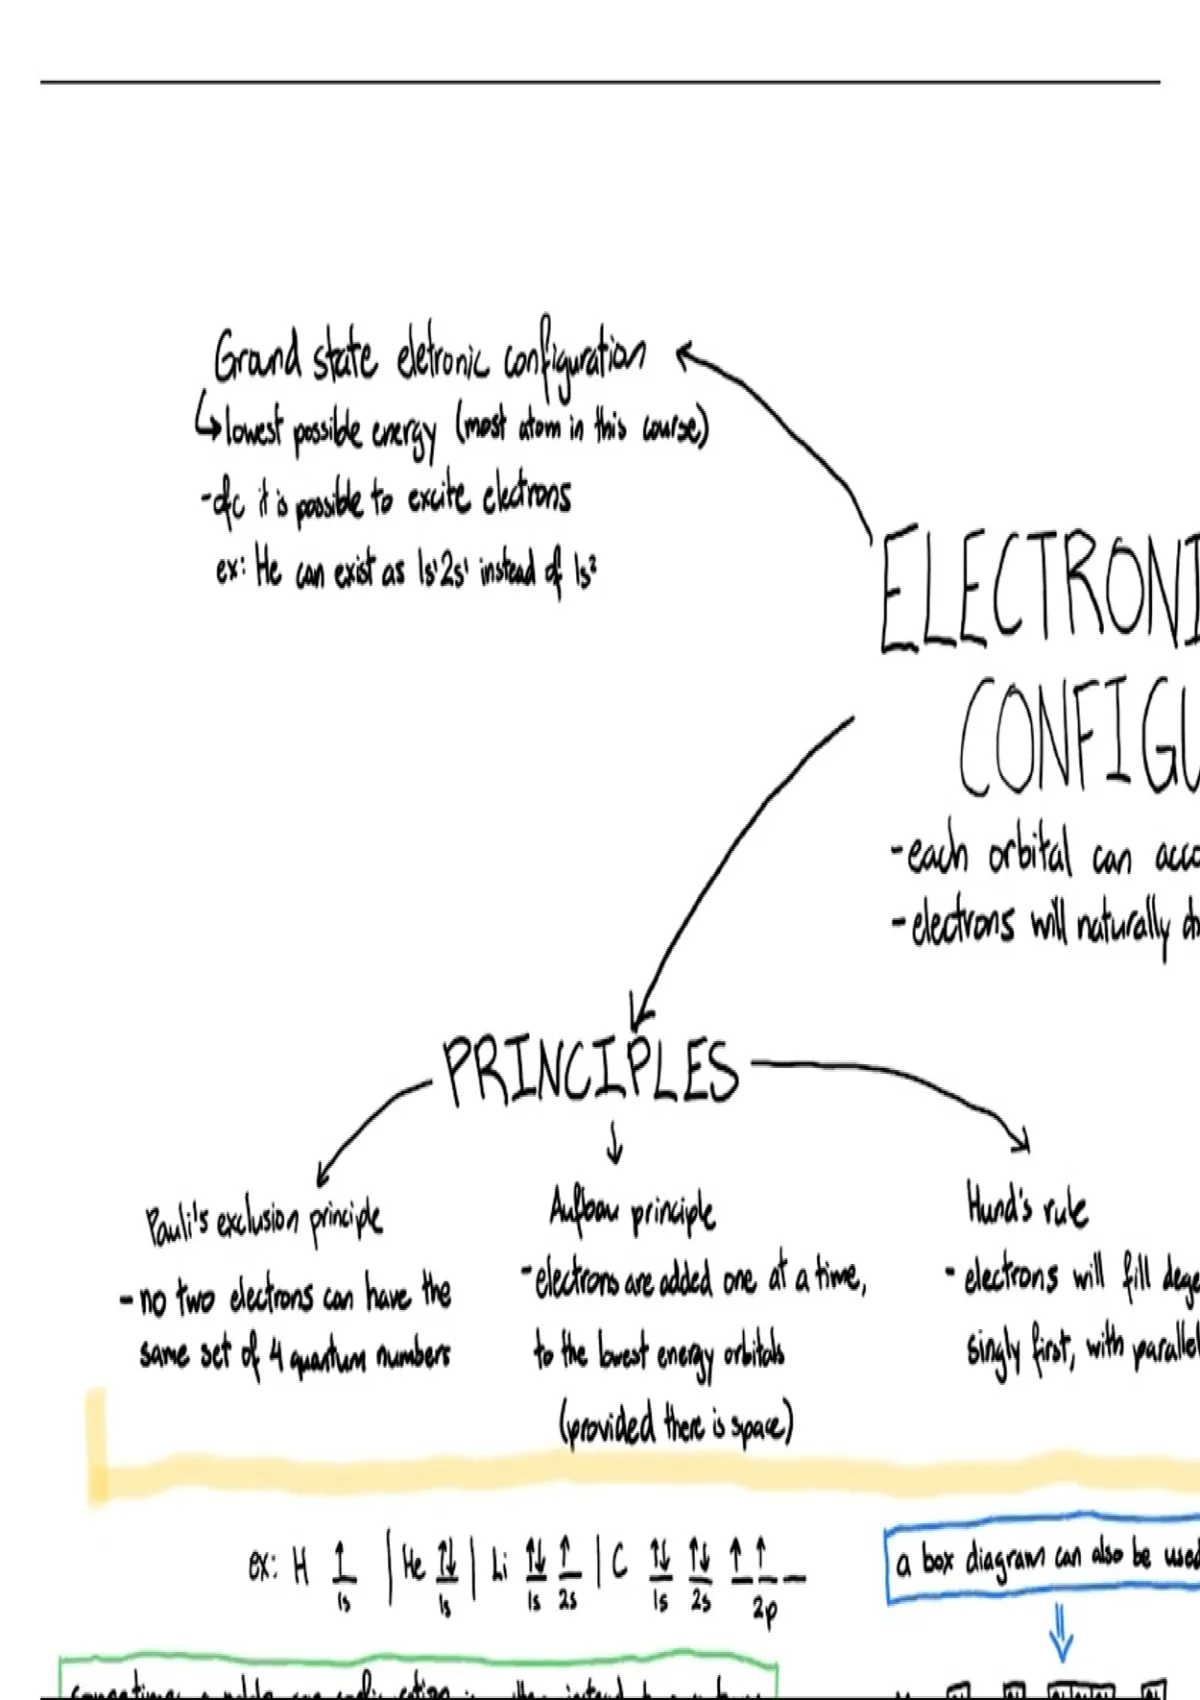 Ground state eletronic configuration
↳ lowest possible energy (most atom in this course)
- ofc it is possible to excite electrons
ex: He can exist as 1s¹2s¹ instead of 1s²
ELECTRONI
CONFIGU
- each orbital can acco
- electrons will naturally
PRINCIPLES
Pauli's exclusion principle
- no two electrons can have the
same set of 4 quantum numbers
Aufbau principle
- electrons are added one at a time,
to the lowest energy orbitals
(provided there is space)
Hund's rule
- electrons will fill dege
singly first, with parallel
ex: H ↑ | He ↑↓ | Li ↑↓ ↑ | C ↑↓ ↑↓ ↑ ↑
1s 1s 1s 2s 1s 2s 2p
a box diagram can also be used